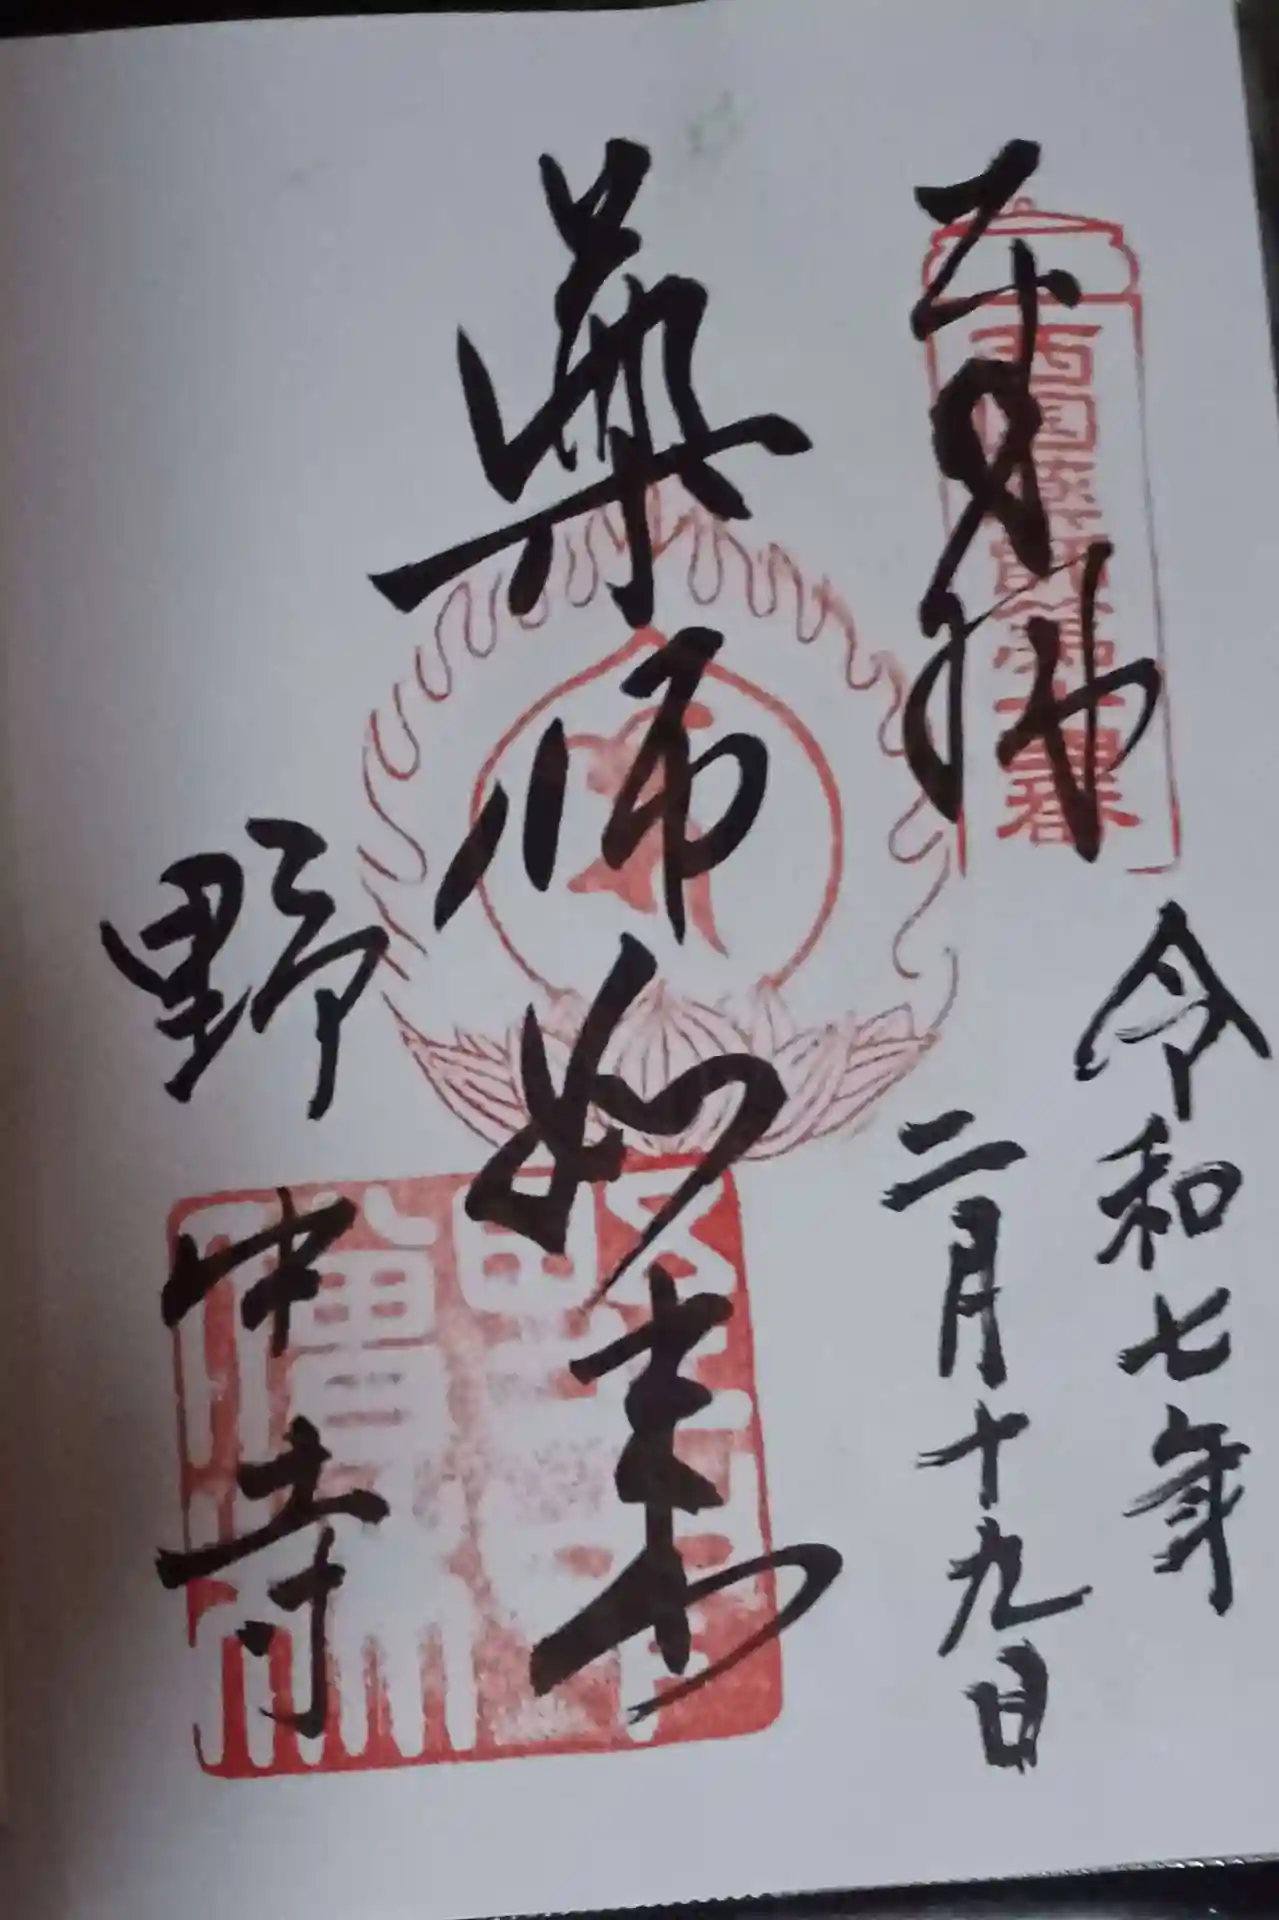 奉拝
西国薬師第十四番
令和七年
二月十九日
薬師如来
野中寺